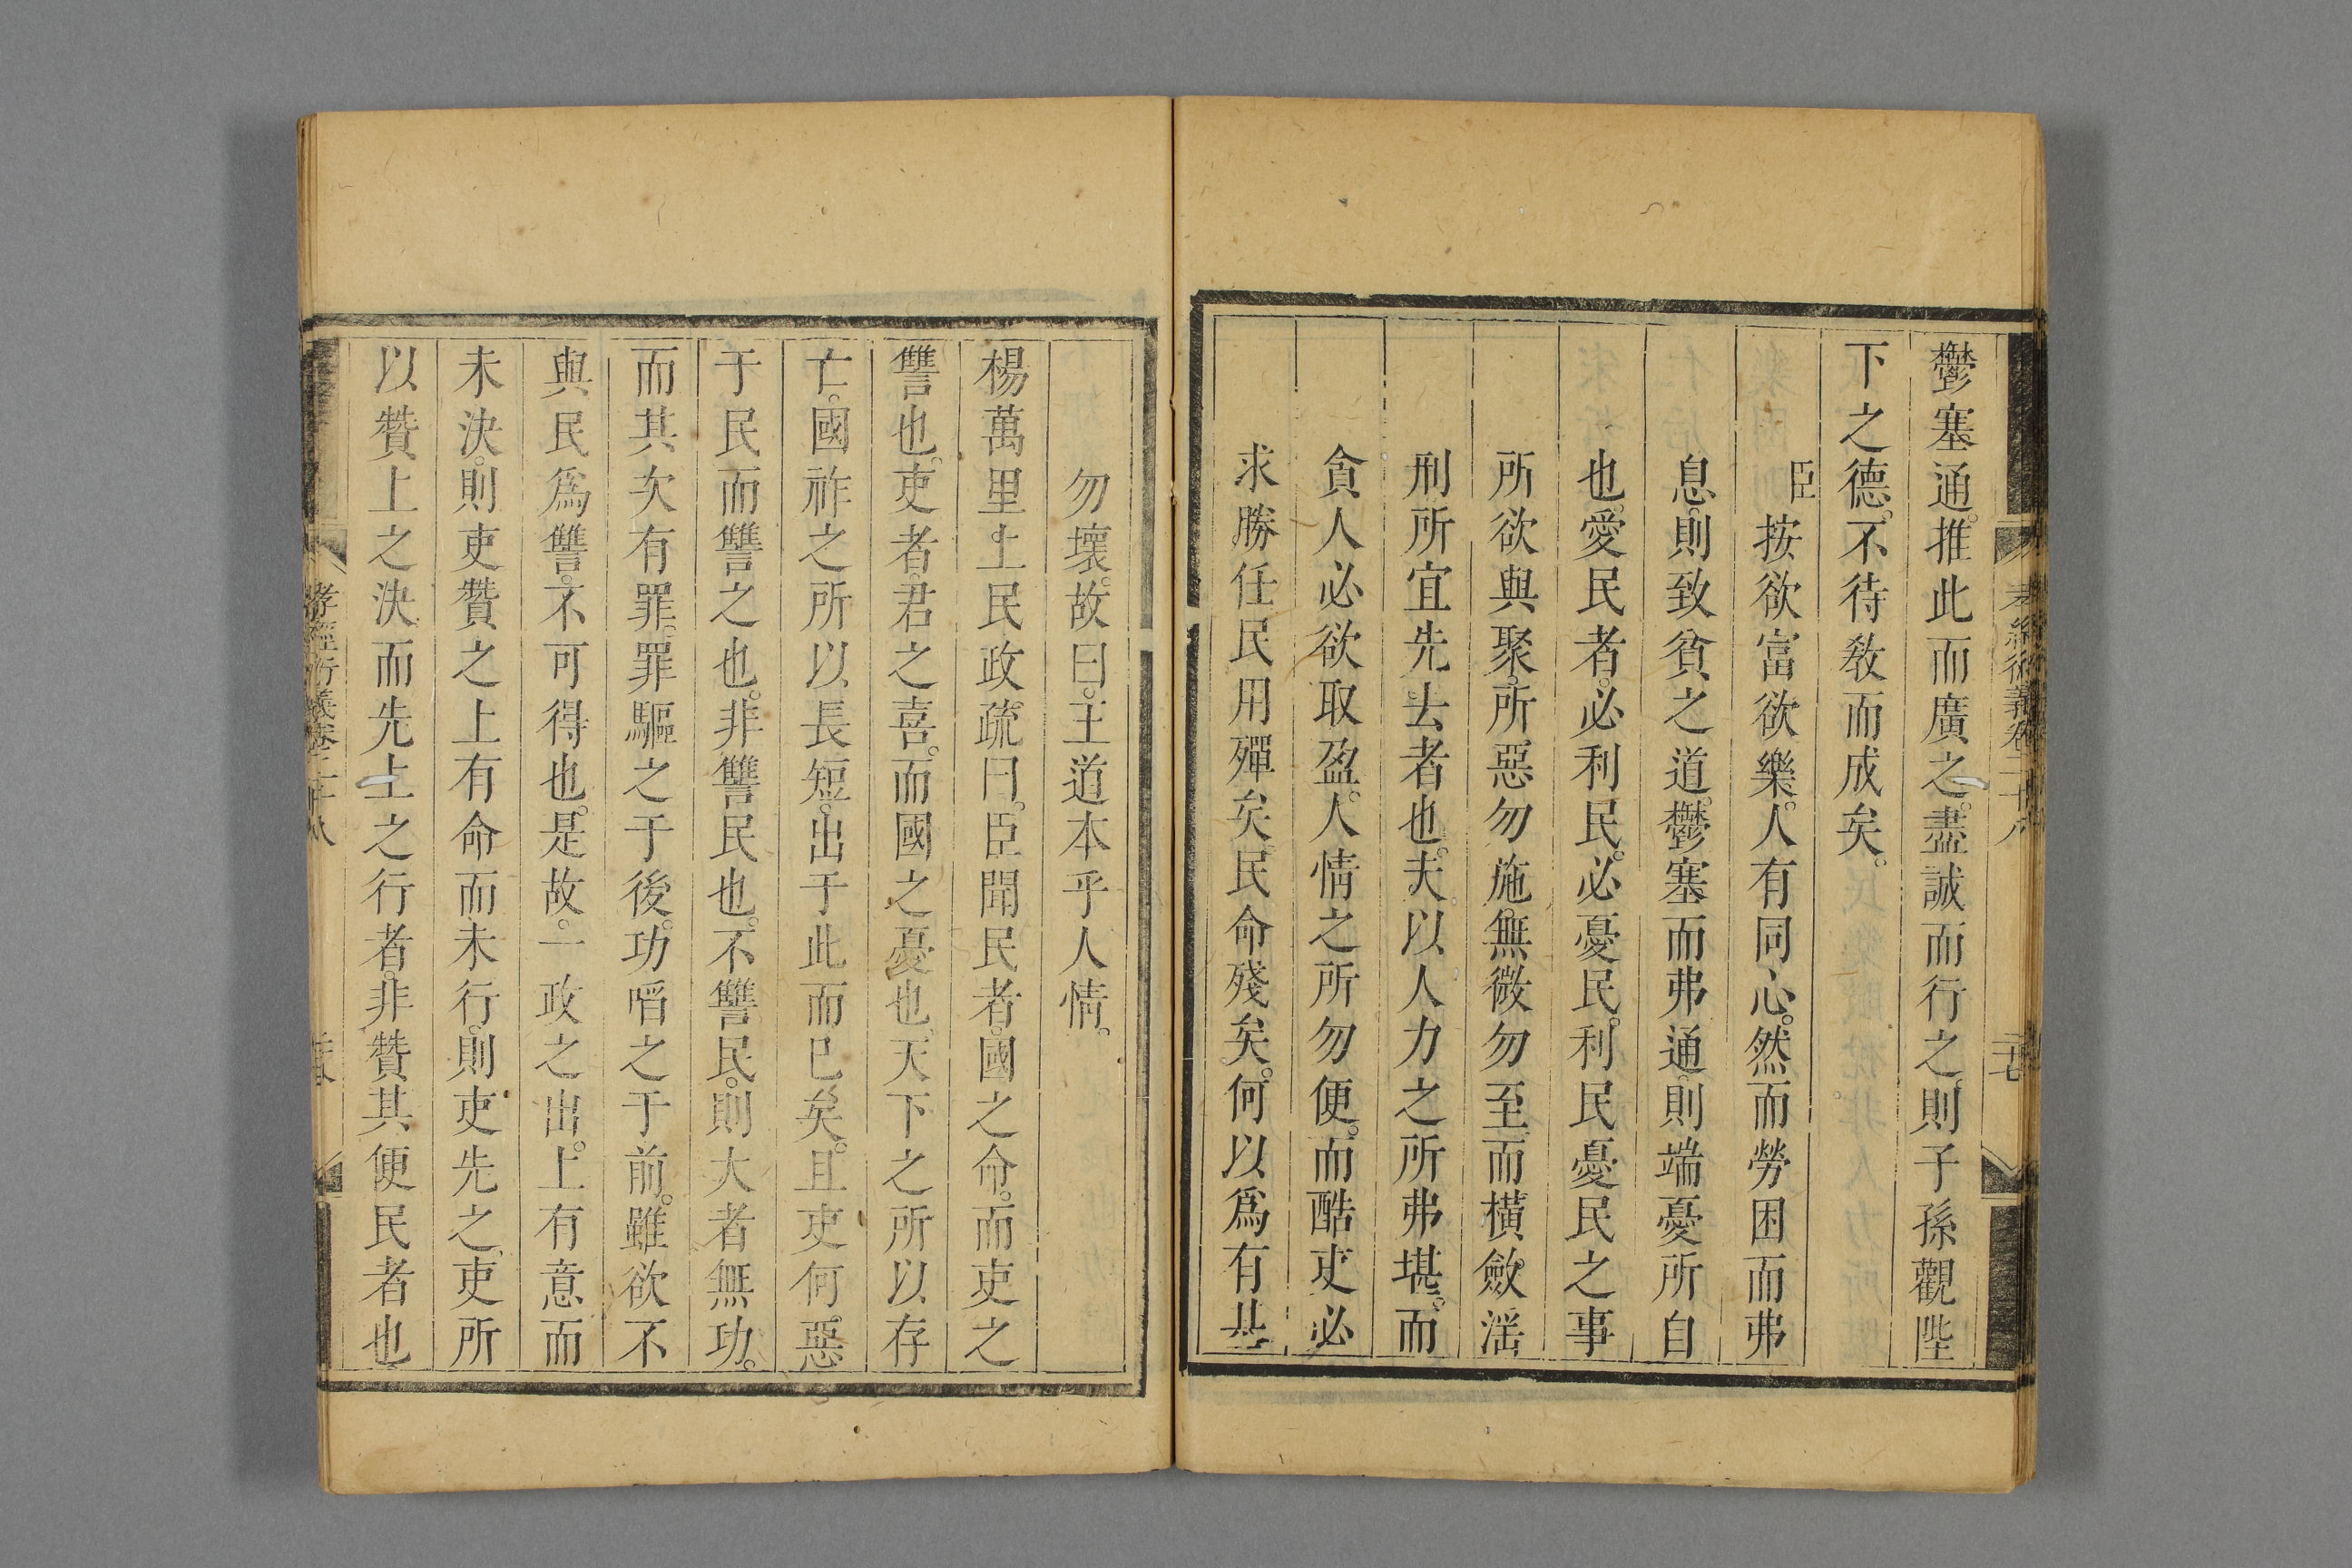 孝經衍義卷二十八
二十七
鬱塞通。推此而廣之。盡誠而行之。則子孫觀陛
下之德。不待教而成矣。
臣按欲富欲樂。人有同心。然而勞困而弗
息。則致貧之道。鬱塞而弗通。則端憂所自
也。愛民者。必利民。必憂民。利民憂民之事
所欲與聚。所惡勿施。無微勿至。而橫斂滛
刑所宜先去者也。夫以人力之所弗堪。而
貪人必欲取盈。人情之所勿便。而酷吏必
求勝任民用殫矣。民命殘矣。何以爲有基
勿壞。故曰。王道本乎人情。
楊萬里上民政疏曰。臣聞民者。國之命。而吏之
讐也。吏者。君之喜。而國之憂也。天下之所以存
亡。國祚之所以長短。出于此而已矣。且吏何。惡
于民而讐之也。非讐民也。不讐民。則大者無功。
而其次有罪。罪驅之于後。功㗖之于前。雖欲不
與民爲讐。不可得也。是故。一政之出。上有意而
未決。則吏贊之。上有命而未行。則吏先之。吏所
以贊上之決而先上之行者。非贊其便民者也。
孝經衍義卷二十八